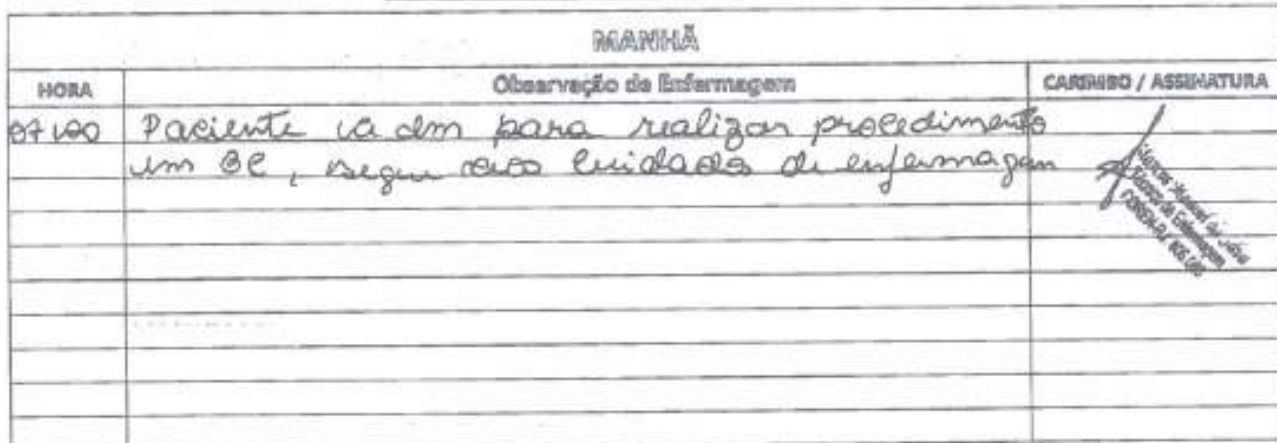 MANHÃ
HORA
Observação de Enfermagem
CARIMBO / ASSINATURA
07:00
Paciente adm para realizar procedimento
em BC, segue aos cuidados de enfermagem
Técnico de Enfermagem